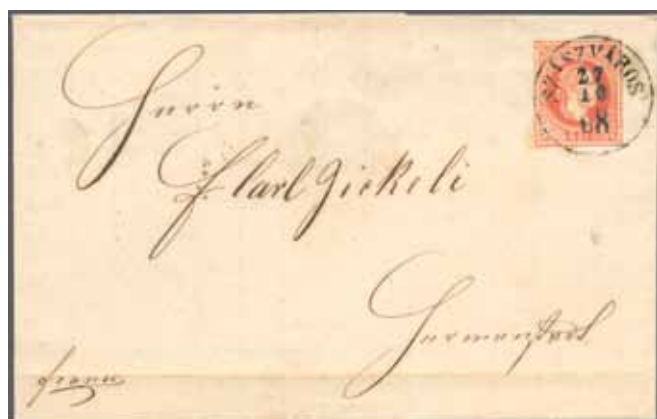 SZÁSZVÁROS
27
10
68
Herrn
Carl Gickeli
Hermanstadt
franco